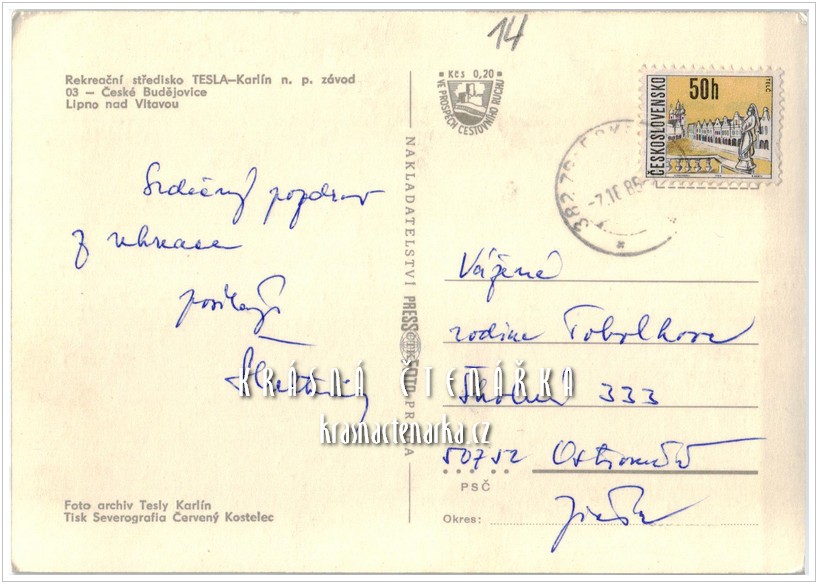 14
Rekreační středisko TESLA—Karlín n. p. závod
03 — České Budějovice
Lipno nad Vltavou
Kčs 0,20
VE PROSPĚCH CESTOVNÍHO RUCHU
ČESKOSLOVENSKO
50h
TELČ
382 78
-7.10 85
Srdečný pozdrav
z rekreace
posílají
NAKLADATELSTVÍ PRESSFOTO PRAHA
Vážená
rodina
Školní 333
50752 Ostroměř
PSČ
Okres: Jičín
KRÁSNÁ ČTENÁŘKA
krasnactenarka.cz
Foto archiv Tesly Karlín
Tisk Severografia Červený Kostelec